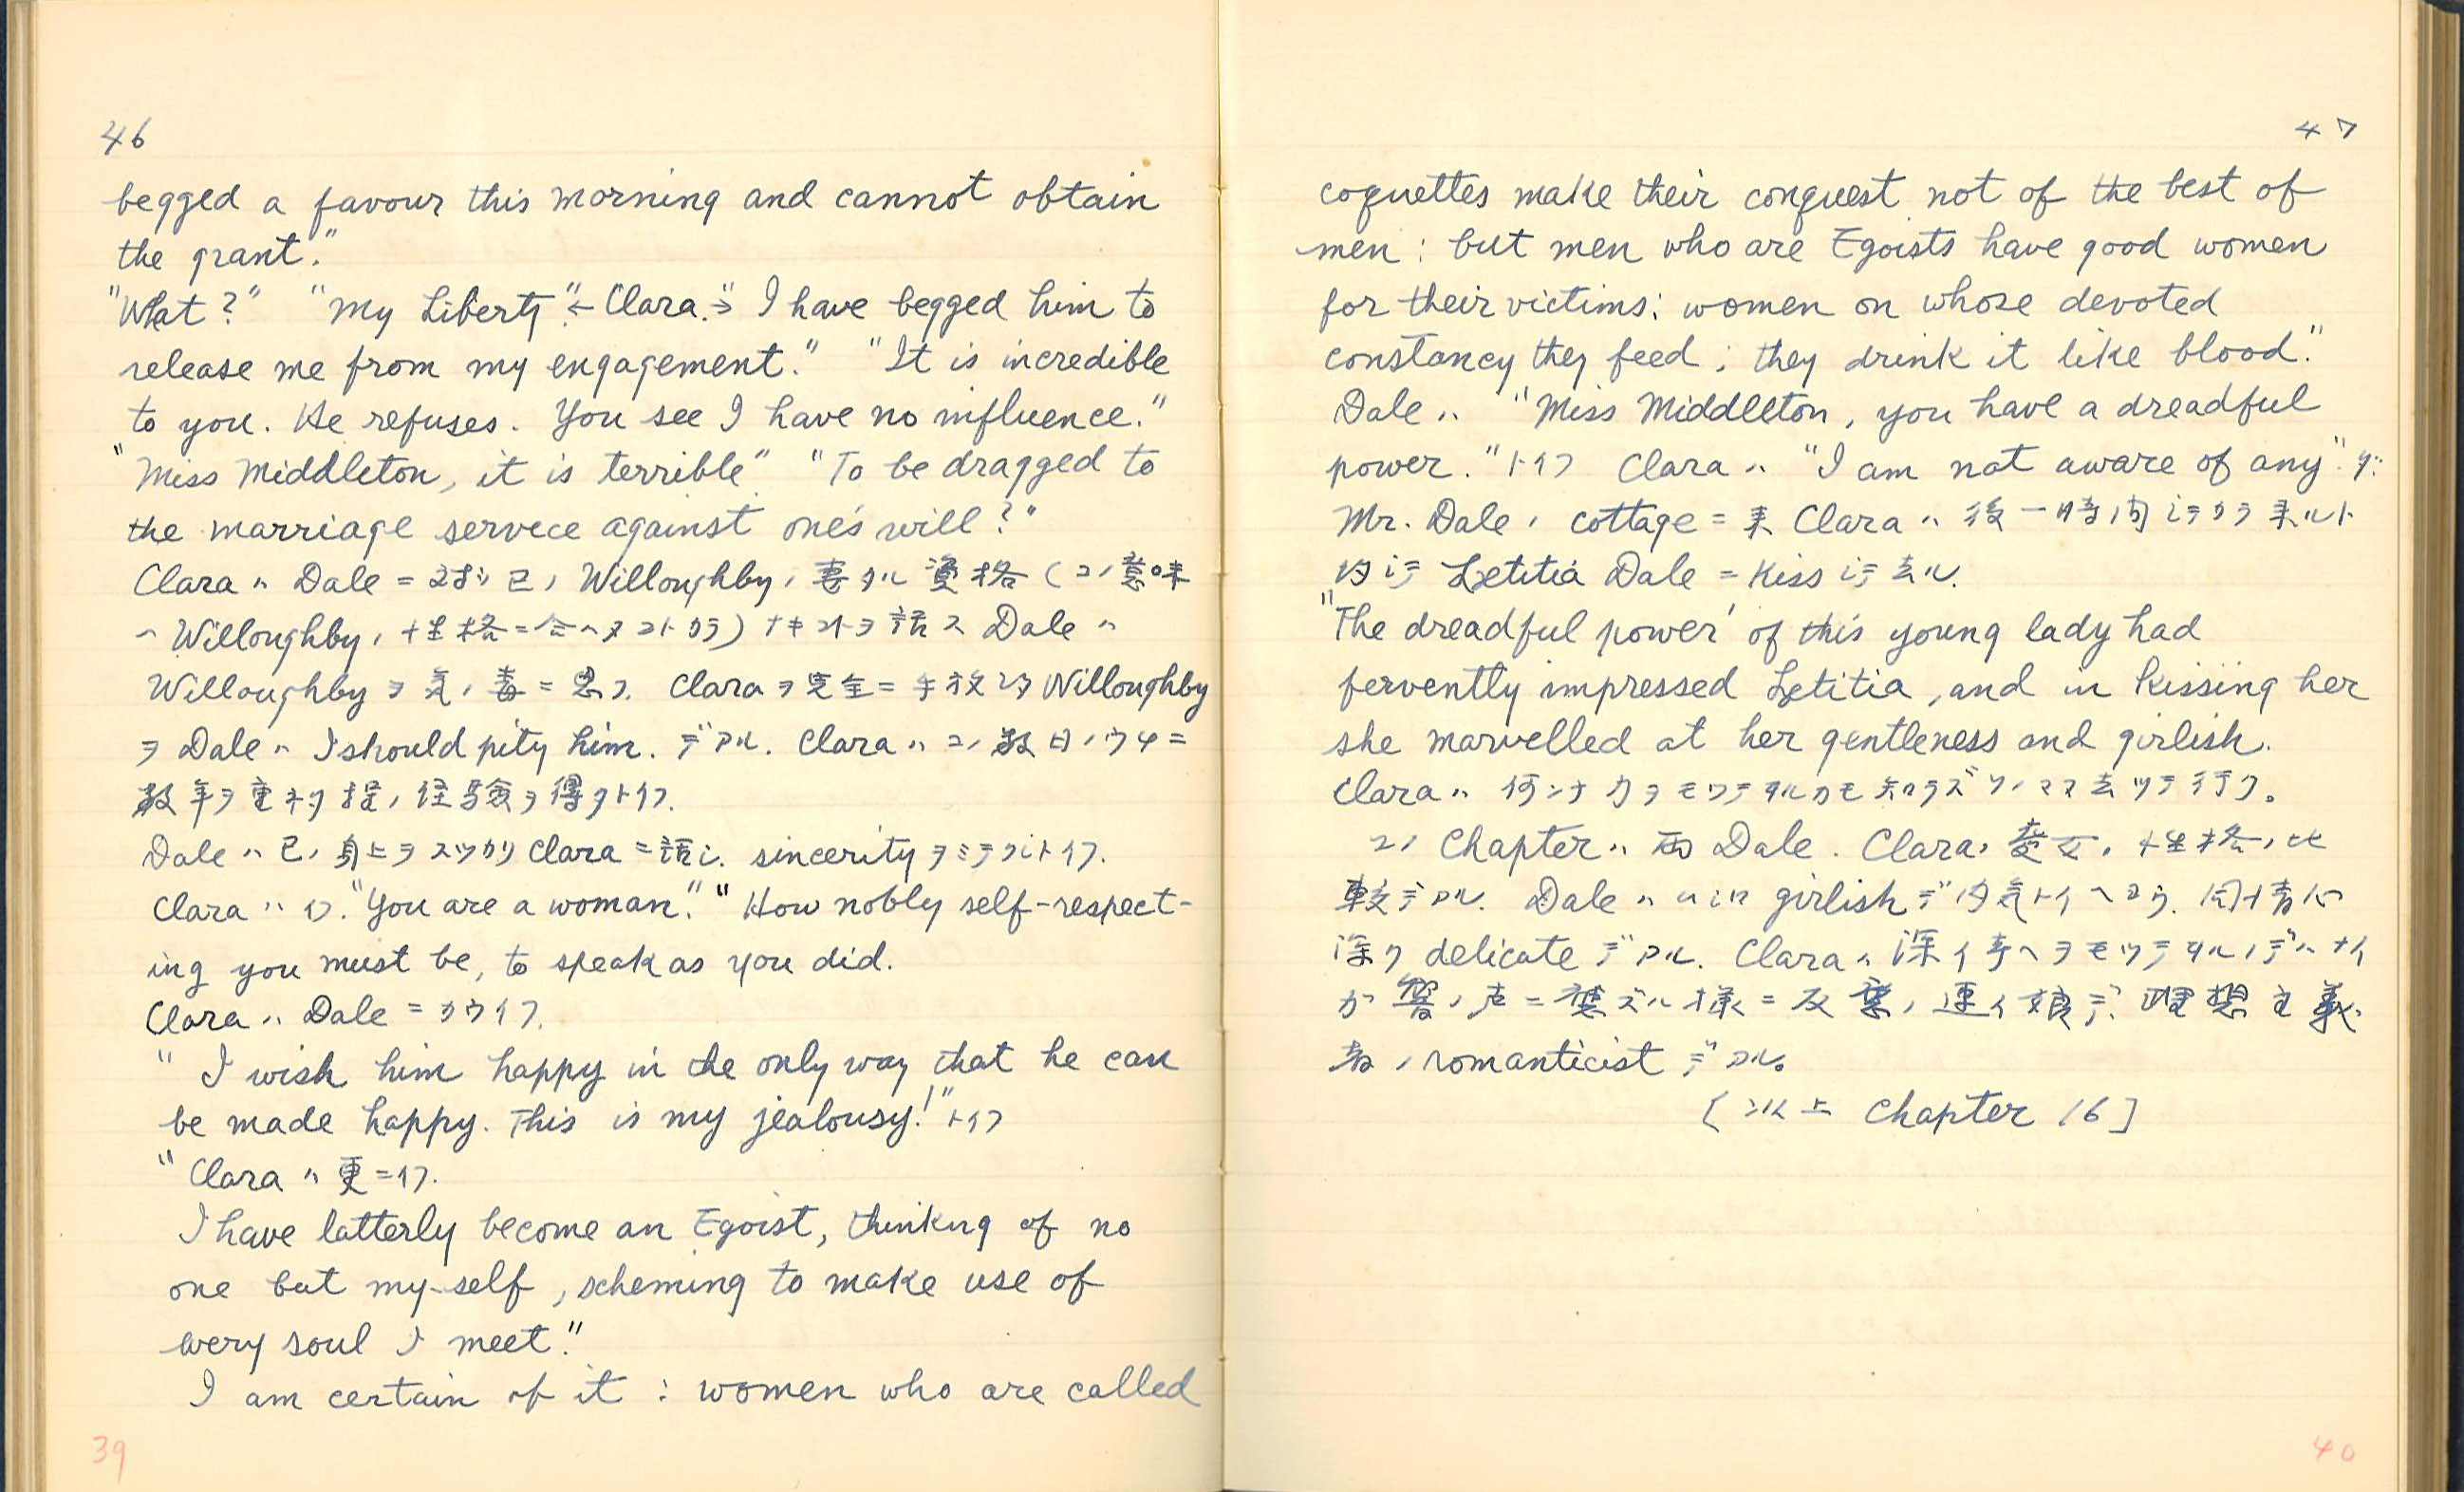 46
begged a favour this morning and cannot obtain
the grant."
"What?" "My Liberty" ← Clara. → I have begged him to
release me from my engagement." "It is incredible
to you. He refuses. You see I have no influence."
"Miss Middleton, it is terrible" "To be dragged to
the marriage servece against one's will?"
Clara ハ Dale ニ対シ己ノ Willoughby ノ妻タル資格 (コノ意味
ハ Willoughby ノ性格ニ合ハヌコトカラ) ナキコトヲ話ス Dale ハ
Willoughby ヲ気ノ毒ニ思フ. Clara ヲ完全ニ手放シタ Willoughby
ヲ Dale ハ I should pity him. デアル. Clara ハコノ数日ノウチニ
数年ヲ重ネタ程ノ経験ヲ得タトイフ.
Dale ハ己ノ身上ヲスッカリ Clara ニ話シ. sincerity ヲミテクレトイフ.
Clara ハイフ. "You are a woman." "How nobly self-respect-
ing you must be, to speak as you did.
Clara ハ Dale ニカウイフ.
"I wish him happy in the only way that he can
be made happy. This is my jealousy!" トイフ
"Clara ハ更ニイフ.
I have latterly become an Egoist, thinking of no
one but my-self, scheming to make use of
every soul I meet."
I am certain of it : women who are called
39
47
coquettes make their conquest not of the best of
men : but men who are Egoists have good women
for their victims; women on whose devoted
constancy they feed ; they drink it like blood."
Dale ハ "Miss Middleton, you have a dreadful
power." トイフ Clara ハ "I am not aware of any".
Mr. Dale ノ cottage ニ来 Clara ハ後一時間シテカラ来ルト
約シテ Letitia Dale ニ Kiss シテ去ル.
"The dreadful power' of this young lady had
fervently impressed Letitia, and in kissing her
she marvelled at her gentleness and girlish.
Clara ハ何ンナ力ヲモッテヰルカモ知ラズソノママ去ッテ行ク。
コノ Chapter ハ両 Dale. Clara ノ処女ノ性格ノ比
較デアル. Dale ハムシロ girlish デ内気トイヘヨウ. 同情心
深ク delicate デアル. Clara ハ深イ考ヘヲモッテヰルノデハナイ
ガ響ノ声ニ応ズル様ニ反応ノ速イ娘デ. 理想主義
者ノ romanticist デアル。
[以上 Chapter 16]
40